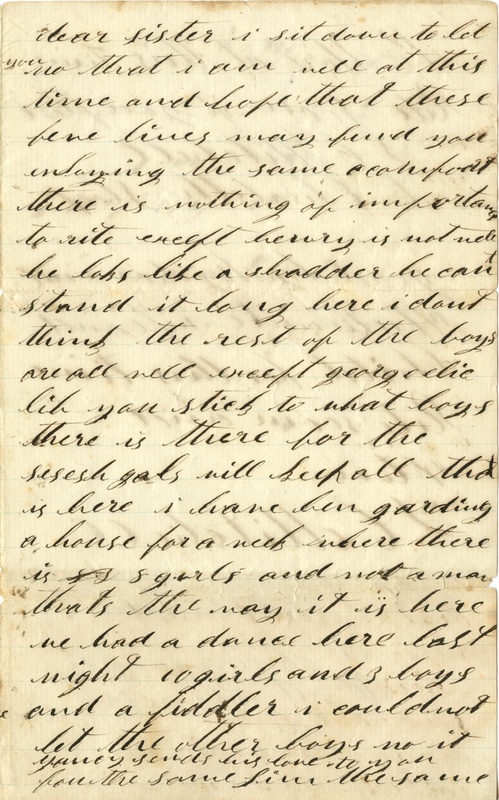 dear sister i sit down to let
you no that i am well at this
time and hope that these
fene lines may find you
inloying the same acomfort
there is nothing of importance
to rite except henry is not well
he loks like a shadder he cant
stand it long here i dont
think the rest of the boys
are all well except george dic
lib you stick to what boys
there is there for the
sesesh gals will keep all that
is here i have ben garding
a house for a week where there
is 5 gurls and not a man
thats the way it is here
we had a dance here last
night 10 girls and 3 boys
and a fiddler i could not
let the other boys no it
yancy sends his love to you
the same the same